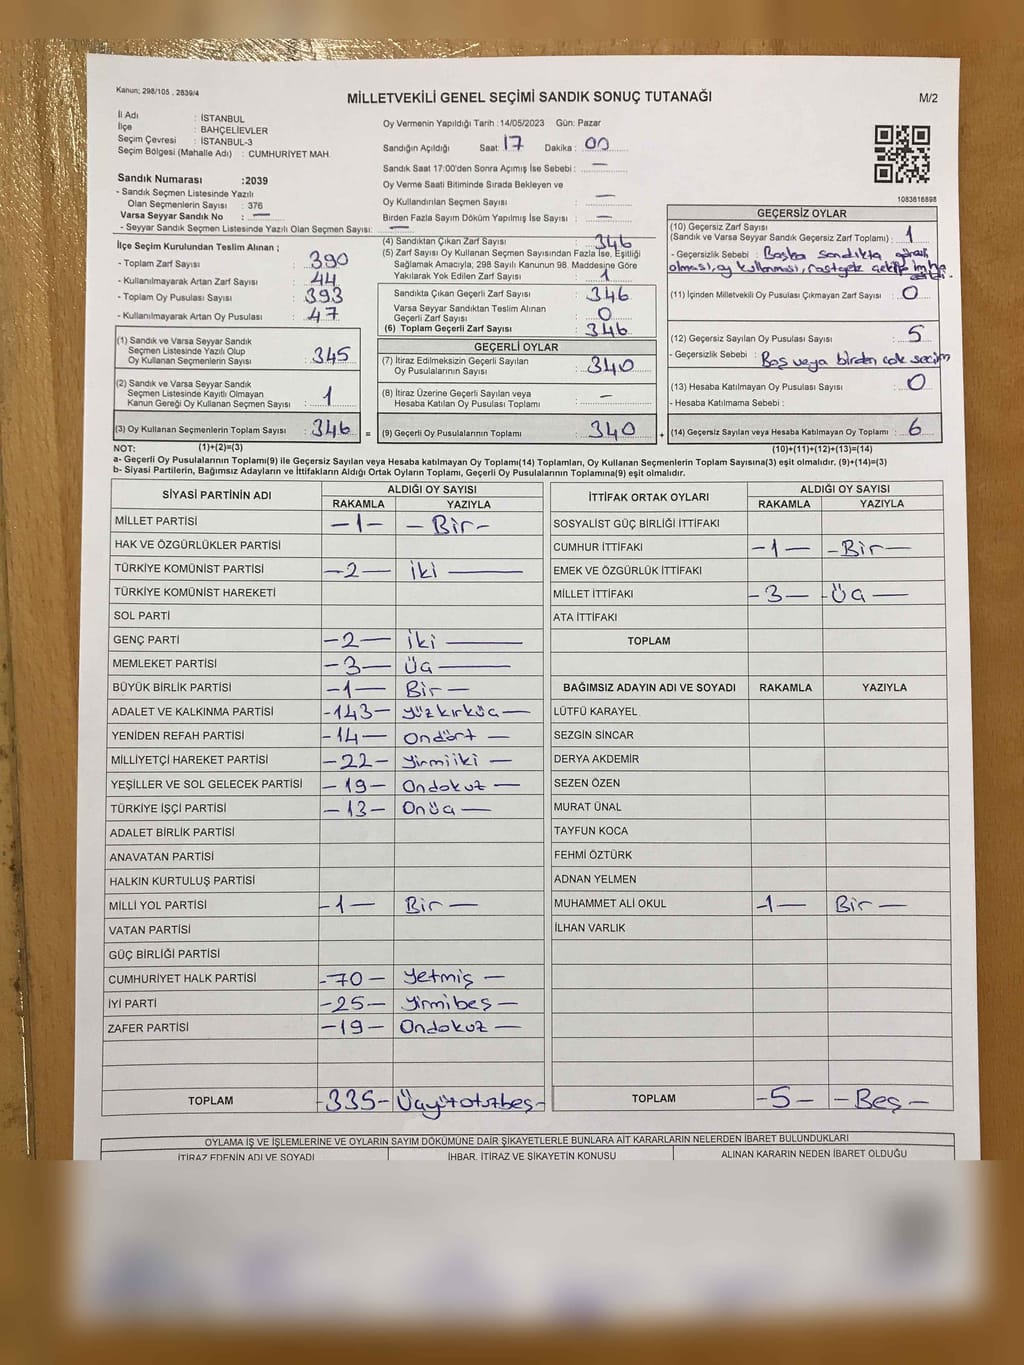 Kanun; 298/105 , 2839/4
MİLLETVEKİLİ GENEL SEÇİMİ SANDIK SONUÇ TUTANAĞI
M/2
İl Adı : İSTANBUL
İlçe : BAHÇELİEVLER
Seçim Çevresi : İSTANBUL-3
Seçim Bölgesi (Mahalle Adı) : CUMHURİYET MAH.
Sandık Numarası :2039
- Sandık Seçmen Listesinde Yazılı
Olan Seçmenlerin Sayısı : 376
Varsa Seyyar Sandık No : —
- Seyyar Sandık Seçmen Listesinde Yazılı Olan Seçmen Sayısı: —
Oy Vermenin Yapıldığı Tarih :14/05/2023 Gün: Pazar
Sandığın Açıldığı Saat: 17 Dakika : 00
Sandık Saat 17:00'den Sonra Açımış İse Sebebi : —
Oy Verme Saati Bitiminde Sırada Bekleyen ve
Oy Kullandırılan Seçmen Sayısı : —
Birden Fazla Sayım Döküm Yapılmış İse Sayısı : —
1083616898
İlçe Seçim Kurulundan Teslim Alınan ;
- Toplam Zarf Sayısı : 390
- Kullanılmayarak Artan Zarf Sayısı : 44
- Toplam Oy Pusulası Sayısı : 393
- Kullanılmayarak Artan Oy Pusulası : 47
(1) Sandık ve Varsa Seyyar Sandık
Seçmen Listesinde Yazılı Olup
Oy Kullanan Seçmenlerin Sayısı : 345
(2) Sandık ve Varsa Seyyar Sandık
Seçmen Listesinde Kayıtlı Olmayan
Kanun Gereği Oy Kullanan Seçmen Sayısı : 1
(3) Oy Kullanan Seçmenlerin Toplam Sayısı : 346 =
(4) Sandıktan Çıkan Zarf Sayısı : 346
(5) Zarf Sayısı Oy Kullanan Seçmen Sayısından Fazla İse, Eşitliği
Sağlamak Amacıyla; 298 Sayılı Kanunun 98. Maddesine Göre
Yakılarak Yok Edilen Zarf Sayısı : 1
Sandıkta Çıkan Geçerli Zarf Sayısı : 346
Varsa Seyyar Sandıktan Teslim Alınan
Geçerli Zarf Sayısı : 0
(6) Toplam Geçerli Zarf Sayısı : 346
GEÇERLİ OYLAR
(7) İtiraz Edilmeksizin Geçerli Sayılan
Oy Pusulalarının Sayısı : 340
(8) İtiraz Üzerine Geçerli Sayılan veya
Hesaba Katılan Oy Pusulası Toplamı : —
(9) Geçerli Oy Pusulalarının Toplamı : 340 +
GEÇERSİZ OYLAR
(10) Geçersiz Zarf Sayısı
(Sandık ve Varsa Seyyar Sandık Geçersiz Zarf Toplamı) : 1
- Geçersizlik Sebebi : Başka sandıkta
olması, oy kullanması,
(11) İçinden Milletvekili Oy Pusulası Çıkmayan Zarf Sayısı : 0
(12) Geçersiz Sayılan Oy Pusulası Sayısı : 5
- Geçersizlik Sebebi : Boş veya birden çok seçim
(13) Hesaba Katılmayan Oy Pusulası Sayısı : 0
- Hesaba Katılmama Sebebi :
(14) Geçersiz Sayılan veya Hesaba Katılmayan Oy Toplamı : 6
NOT: (1)+(2)=(3) (10)+(11)+(12)+(13)=(14)
a- Geçerli Oy Pusulalarının Toplamı(9) ile Geçersiz Sayılan veya Hesaba katılmayan Oy Toplamı(14) Toplamları, Oy Kullanan Seçmenlerin Toplam Sayısına(3) eşit olmalıdır. (9)+(14)=(3)
b- Siyasi Partilerin, Bağımsız Adayların ve İttifakların Aldığı Ortak Oyların Toplamı, Geçerli Oy Pusulalarının Toplamına(9) eşit olmalıdır.
SİYASİ PARTİNİN ADI ALDIĞI OY SAYISI
RAKAMLA YAZIYLA
MİLLET PARTİSİ -1- -Bir-
HAK VE ÖZGÜRLÜKLER PARTİSİ
TÜRKİYE KOMÜNİST PARTİSİ -2- iki —
TÜRKİYE KOMÜNİST HAREKETİ
SOL PARTİ
GENÇ PARTİ -2- iki —
MEMLEKET PARTİSİ -3- Üç —
BÜYÜK BİRLİK PARTİSİ -1- Bir —
ADALET VE KALKINMA PARTİSİ -143- yüzkırküç —
YENİDEN REFAH PARTİSİ -14- Ondört —
MİLLİYETÇİ HAREKET PARTİSİ -22- Yirmiiki —
YEŞİLLER VE SOL GELECEK PARTİSİ -19- Ondokuz —
TÜRKİYE İŞÇİ PARTİSİ -13- Onüç —
ADALET BİRLİK PARTİSİ
ANAVATAN PARTİSİ
HALKIN KURTULUŞ PARTİSİ
MİLLİ YOL PARTİSİ -1- Bir —
VATAN PARTİSİ
GÜÇ BİRLİĞİ PARTİSİ
CUMHURİYET HALK PARTİSİ -70- Yetmiş —
İYİ PARTİ -25- Yirmibeş —
ZAFER PARTİSİ -19- Ondokuz —
TOPLAM -335- Üçyüzotuzbeş-
İTTİFAK ORTAK OYLARI ALDIĞI OY SAYISI
RAKAMLA YAZIYLA
SOSYALİST GÜÇ BİRLİĞİ İTTİFAKI
CUMHUR İTTİFAKI -1- -Bir-
EMEK VE ÖZGÜRLÜK İTTİFAKI
MİLLET İTTİFAKI -3- -Üç-
ATA İTTİFAKI
TOPLAM
BAĞIMSIZ ADAYIN ADI VE SOYADI RAKAMLA YAZIYLA
LÜTFÜ KARAYEL
SEZGİN SİNCAR
DERYA AKDEMİR
SEZEN ÖZEN
MURAT ÜNAL
TAYFUN KOCA
FEHMİ ÖZTÜRK
ADNAN YELMEN
MUHAMMET ALİ OKUL -1- Bir —
İLHAN VARLIK
TOPLAM -5- -Beş-
OYLAMA İŞ VE İŞLEMLERİNE VE OYLARIN SAYIM DÖKÜMÜNE DAİR ŞİKAYETLERLE BUNLARA AİT KARARLARIN NELERDEN İBARET BULUNDUKLARI
İTİRAZ EDENİN ADI VE SOYADI İHBAR, İTİRAZ VE ŞİKAYETİN KONUSU ALINAN KARARIN NEDEN İBARET OLDUĞU